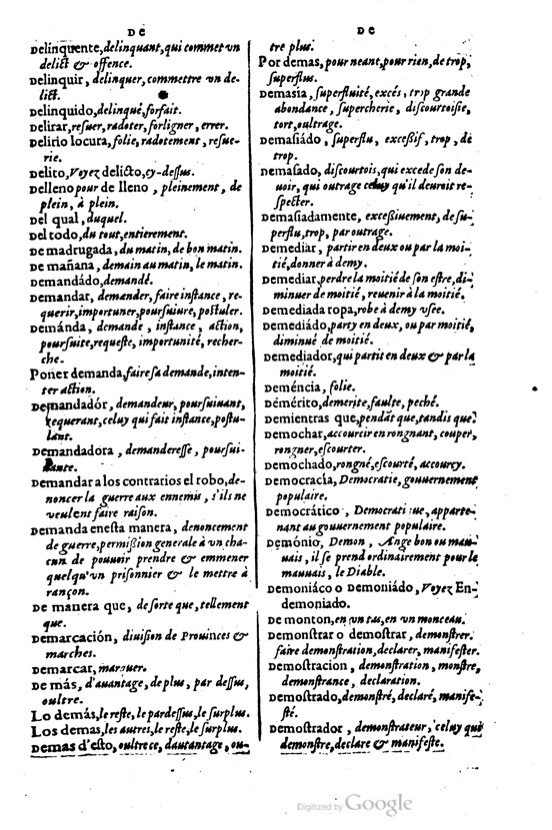 DE
Delinquente, delinquant, qui commet vn
delict & offence.
Delinquir, delinquer, commettre vn de-
lict.
Delinquido, delinqué, forfait.
Delirar, resuer, radoter, forligner, errer.
Delirio locura, folie, radotement, resue-
rie.
Delito, Voyez delicto, cy-dessus.
Delleno pour de lleno, pleinement, de
plein, à plein.
Del qual, duquel.
Del todo, du tout, entierement.
De madrugada, du matin, de bon matin.
De mañana, demain au matin, le matin.
Demandádo, demandé.
Demandar, demander, faire instance, re-
querir, importuner, poursuiure, postuler.
Demánda, demande, instance, action,
poursuite, requeste, importunité, recher-
che.
Poner demanda, faire sa demande, inten-
ter action.
Demandadór, demandeur, poursuiuant,
requerant, celuy qui fait instance, postu-
lant.
Demandadora, demanderesse, poursui-
uante.
Demandar a los contrarios el robo, de-
noncer la guerre aux ennemis, s'ils ne
veulent faire raison.
Demanda enesta manera, denoncement
de guerre, permission generale à vn cha-
cun de pouuoir prendre & emmener
quelqu'vn prisonnier & le mettre à
rançon.
De manera que, de sorte que, tellement
que.
Demarcación, diuision de Prouinces &
marches.
Demarcar, marquer.
De más, d'auantage, de plus, par dessus,
oultre.
Lo demás, le reste, le pardessus, le surplus.
Los demas, les autres, le reste, le surplus.
Demas d'esto, oultre ce, dautantage, ou-
DE
tre plus.
Por demas, pour neant, pour rien, de trop,
superflus.
Demasía, superfluité, excés, trop grande
abondance, supercherie, discourtoisie,
tort, oultrage.
Demasiádo, superflu, excessif, trop, de
trop.
Demasado, discourtois, qui excede son de-
uoir, qui outrage celuy qu'il deuroit re-
specter.
Demasiadamente, excessiuement, de su-
perflu, trop, par outrage.
Demediar, partir en deux ou par la moi-
tié, donner à demy.
Demediar, perdre la moitié de son estre, di-
minuer de moitié, reuenir à la moitié.
Demediada ropa, robe à demy vsee.
Demediádo, party en deux, ou par moitié,
diminué de moitié.
Demediador, qui partit en deux & par la
moitié.
Deméncia, folie.
Démérito, demerite, faulte, peché.
Demientras que, pendãt que, tandis que.
Demochar, accourcir en rongnant, couper,
rongner, escourter.
Demochado, rongné, escourté, accourcy.
Democracía, Democratie, gouuernement
populaire.
Democrático, Democratique, apparte-
nant au gouuernement populaire.
Demónio, Demon, Ange bon ou mau-
uais, il se prend ordinairement pour le
mauuais, le Diable.
Demoniáco o Demoniádo, Voyez En-
demoniado.
De monton, en vn tas, en vn monceau.
Demonstrar o demostrar, demonstrer.
faire demonstration, declarer, manifester.
Demostracion, demonstration, monstre,
demonstrance, declaration.
Demostrado, demonstré, declaré, manife-
sté.
Demostrador, demonstrateur, celuy qui
demonstre, declare & manifeste.
Digitized by Google